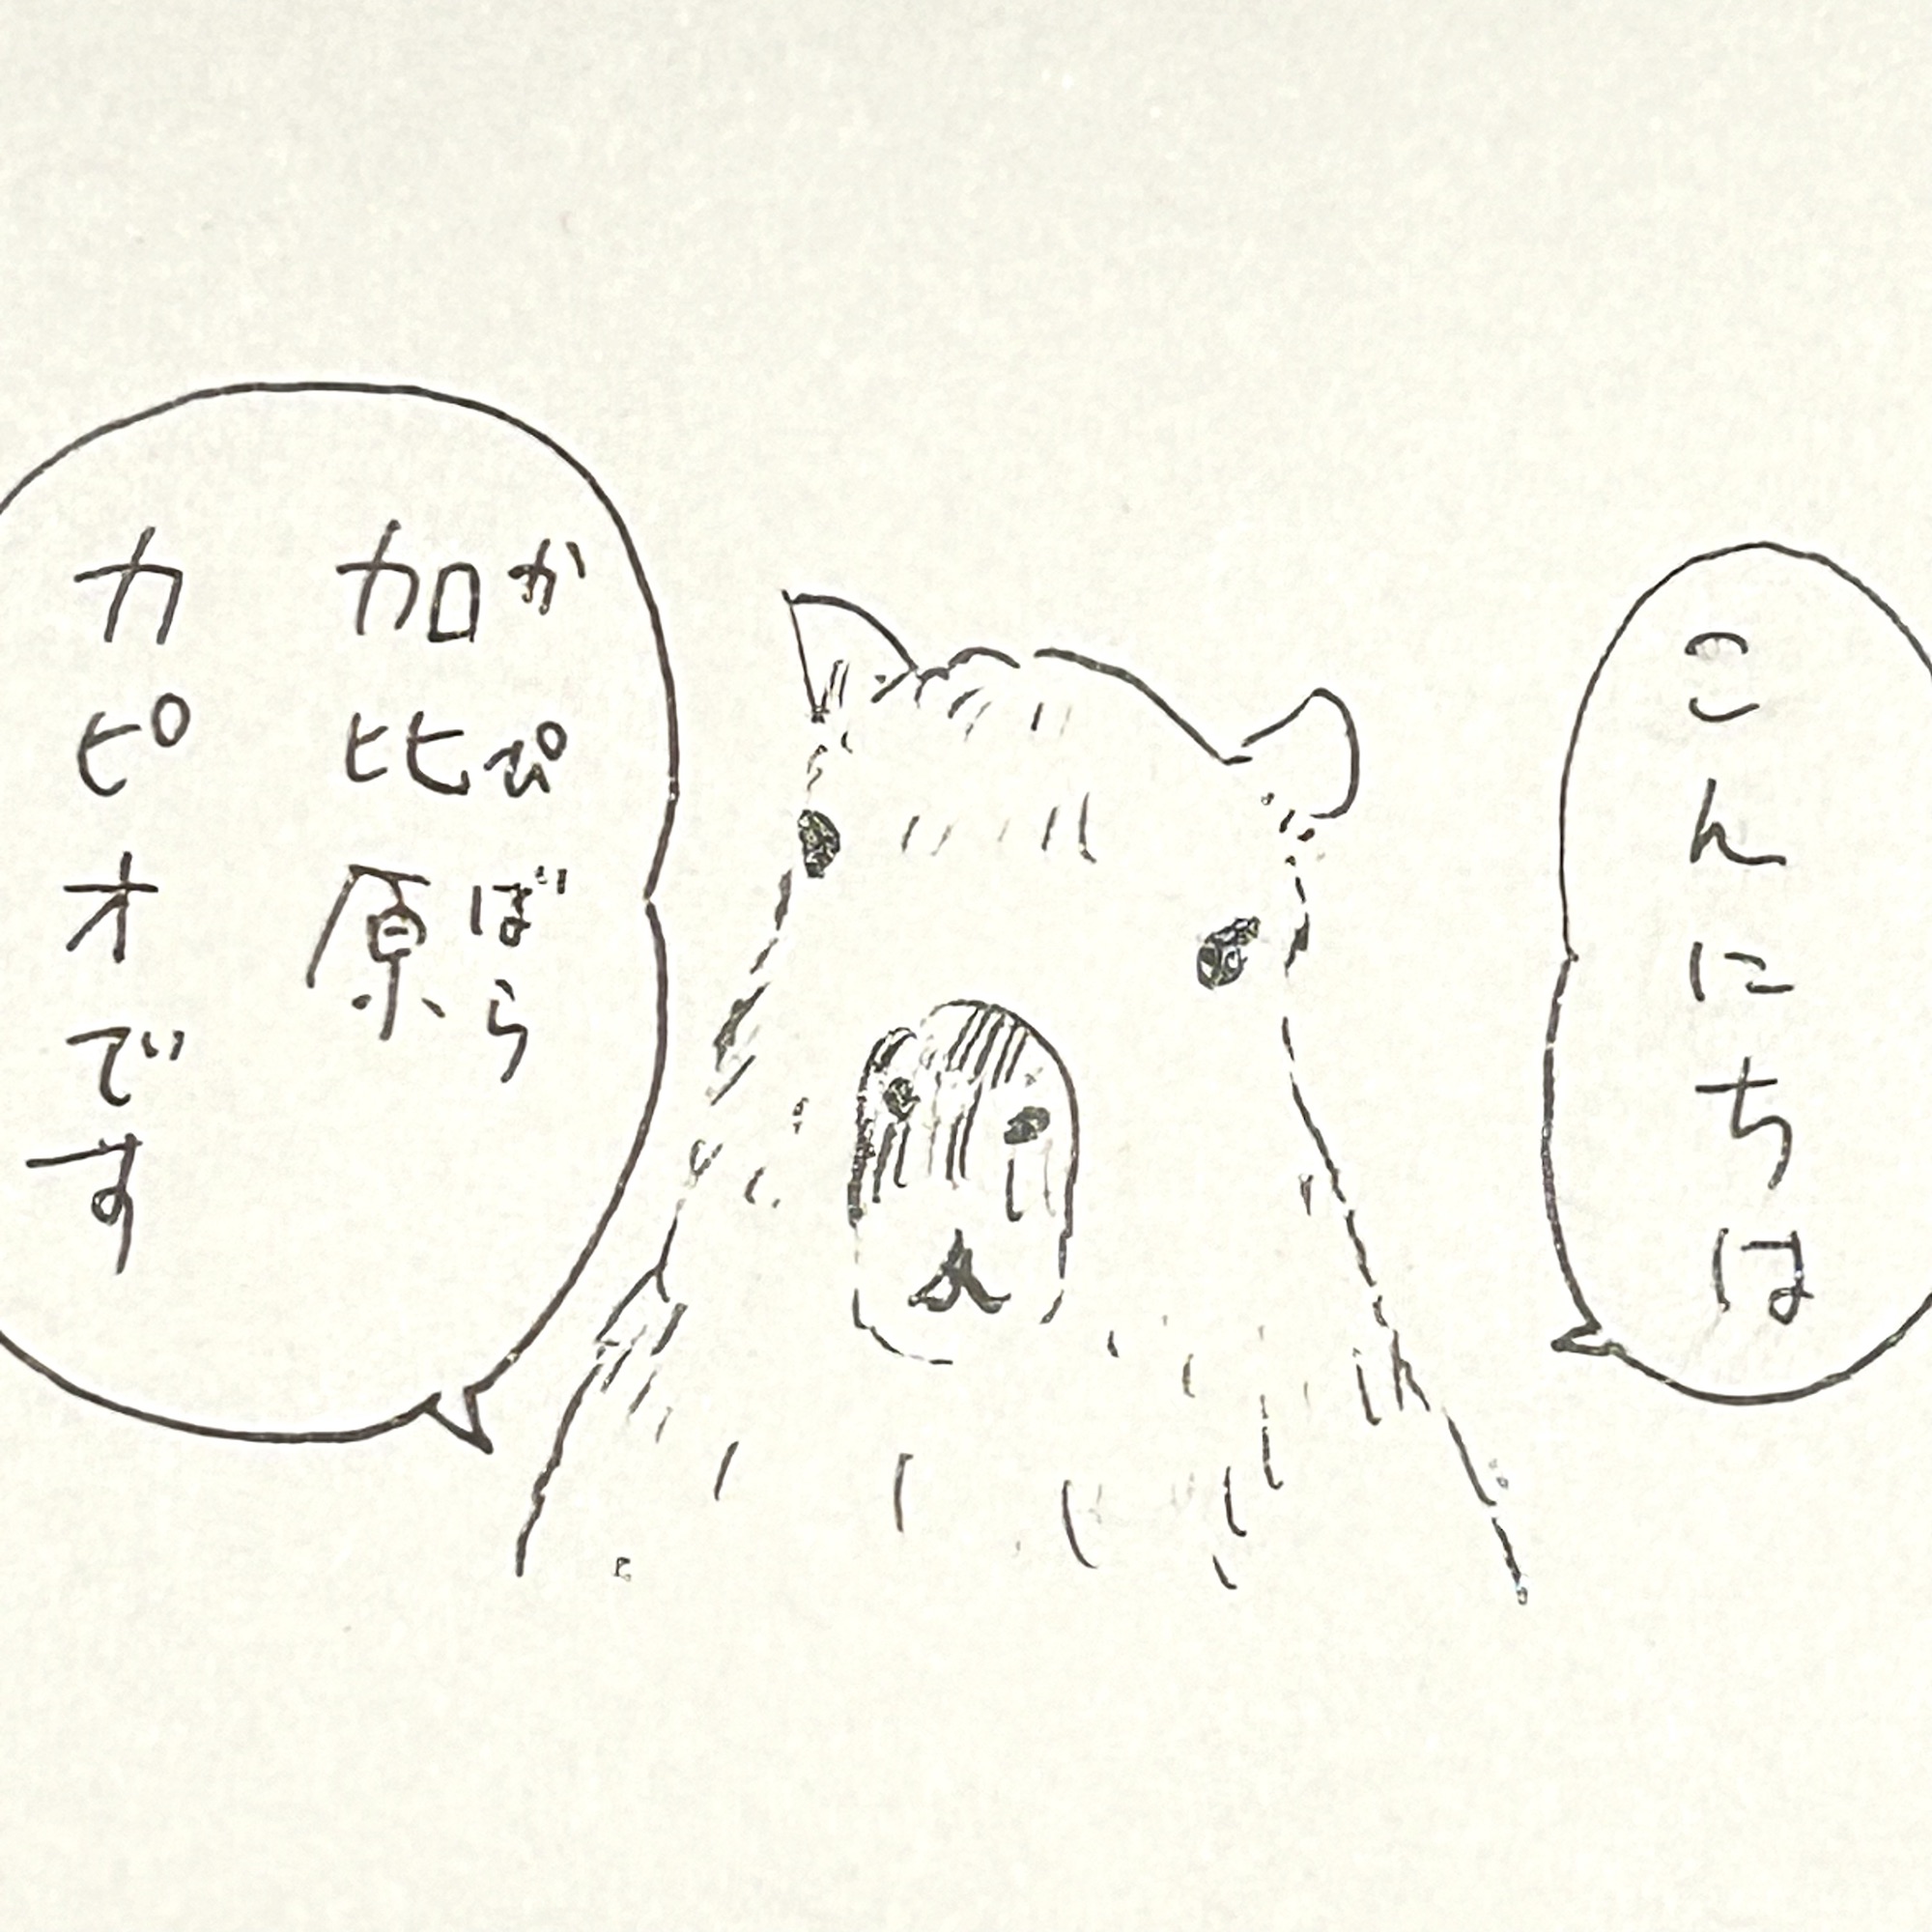 こんにちは
かぴばら
加比原
カピオです